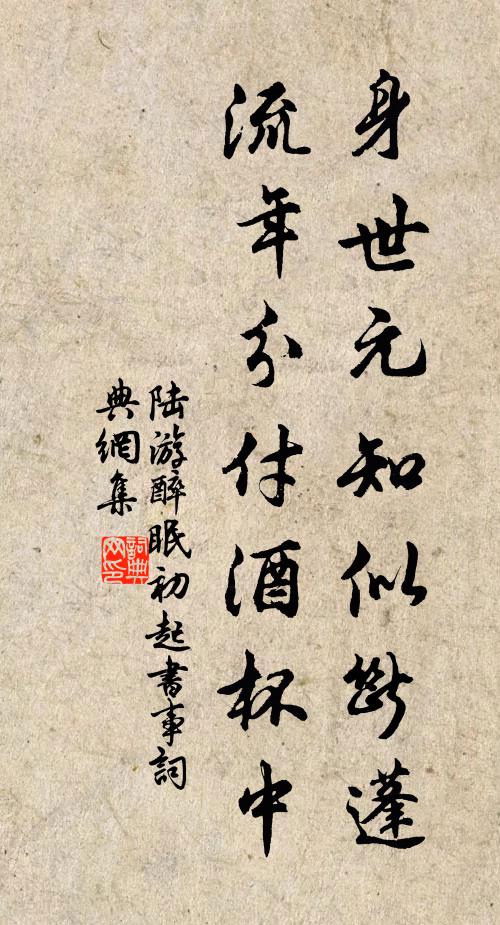 身世元知似斷蓬
流年分付酒杯中
陆游醉眠初起書事詞
典網集
詞典
网印